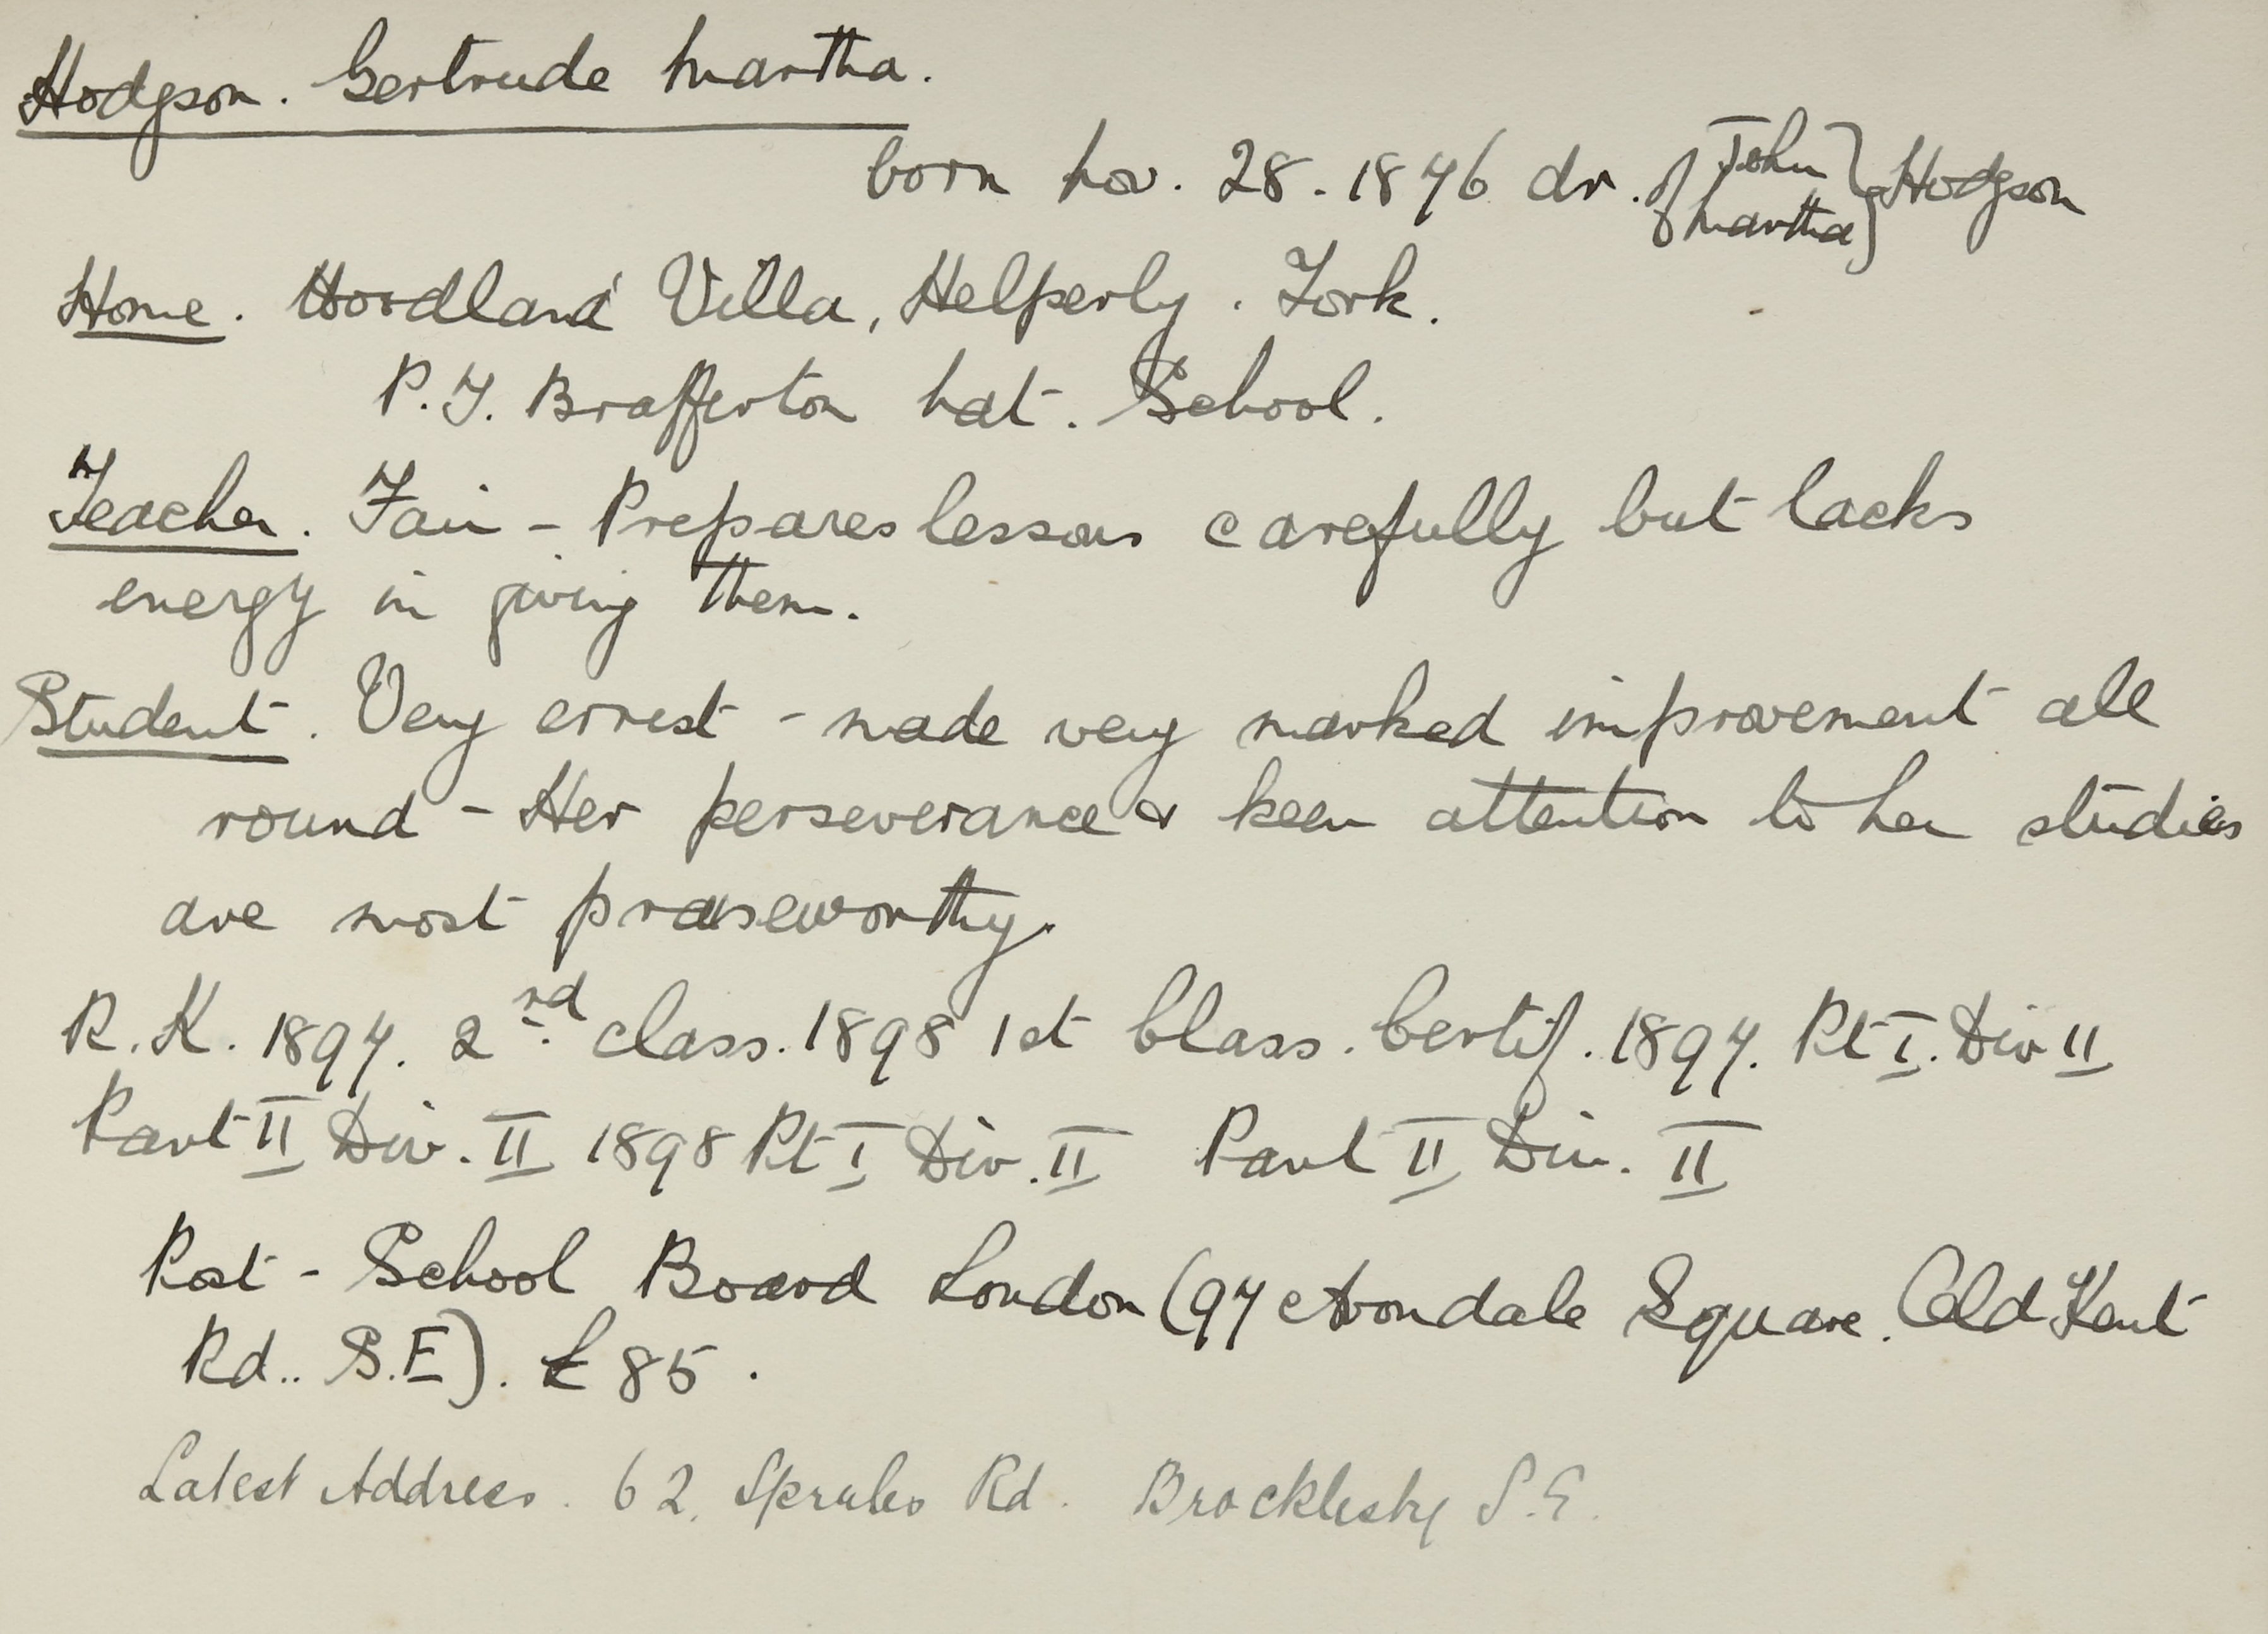 Hodgson. Gertrude Martha.
born Nov. 28. 1876 dr. of John Martha } Hodgson
Home. Woodland Villa, Helperly. York.
P.T. Brafferton Nat. School.
Teacher. Fair - Prepares lessons carefully but lacks
energy in giving them.
Student. Very ernest - made very marked improvement all
round - Her perseverance & keen attention to her studies
are most praiseworthy.
R.K. 1897. 2nd class. 1898 1st Class. Certif. 1897. Pt I. Div II
Part II Div. II 1898 Pt I Div. II Part II Div. II
Post - School Board London (97 Avondale Square. Old Kent
Rd.. S.E). £85.
Latest Address. 62, Rd. Brocklesby S.E.